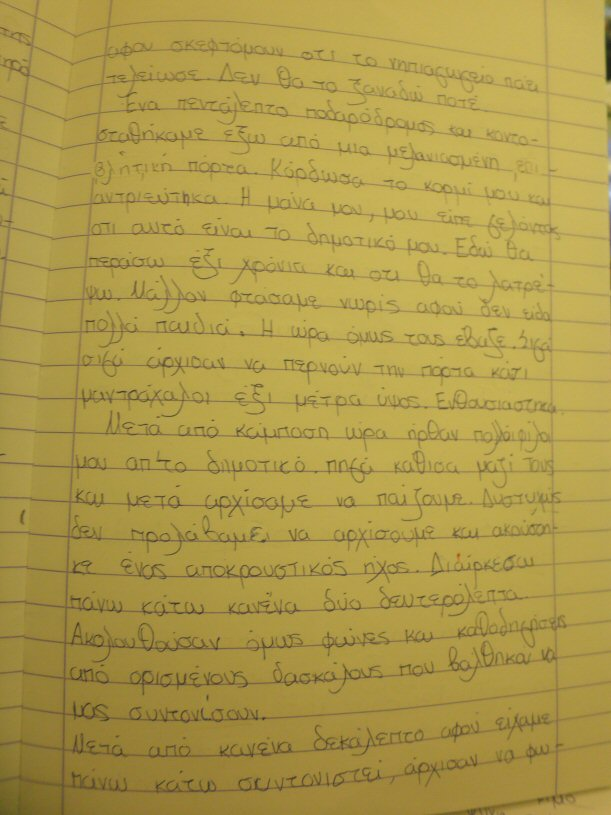 αφου σκεφτόμουν οτι το νηπιαγωγείο πάει
τελείωσε. Δεν θα το ξαναδώ ποτέ.
Ένα πεντάλεπτο ποδαρόδρομος και κοντο-
σταθήκαμε έξω από μια μελανιασμένη, επι-
βλητική πόρτα. Κόρδωσα το κορμί μου και
αντριεύτηκα. Η μάνα μου, μου είπε γελόντας
οτι αυτό είναι το δημοτικό μου. Εδώ θα
περάσω έξι χρόνια και οτι θα το λατρέ-
ψω. Μάλλον φτάσαμε νωρίς αφού δεν είδα
πολλά παιδιά. Η ώρα όμως τους έβγαζε. Σιγά
σιγά άρχισαν να περνούν την πόρτα κάτι
μαντράχαλοι έξι μέτρα ύψος. Ενθουσιάστηκα.
Μετά από κάμποση ώρα ήρθαν πολλοί φίλοι
μου απ'το δημοτικό. πήγα κάθισα μαζί τους
και μετά αρχίσαμε να παίζουμε. Δυστυχώς
δεν προλάβαμε να αρχίσουμε και ακούστη-
κε ένας αποκρουστικός ήχος. Διαίρκεσω
πάνω κάτω κανένα δύο δευτερόλεπτα.
Ακολουθούσαν όμως φωνές και καθοδηγήσεις
από ορισμένους δασκάλους που βάλθηκαν να
μας συντονίσουν.
Μετά από κανένα δεκάλεπτο αφού είχαμε
πάνω κάτω συντονιστεί, άρχισαν να φω-